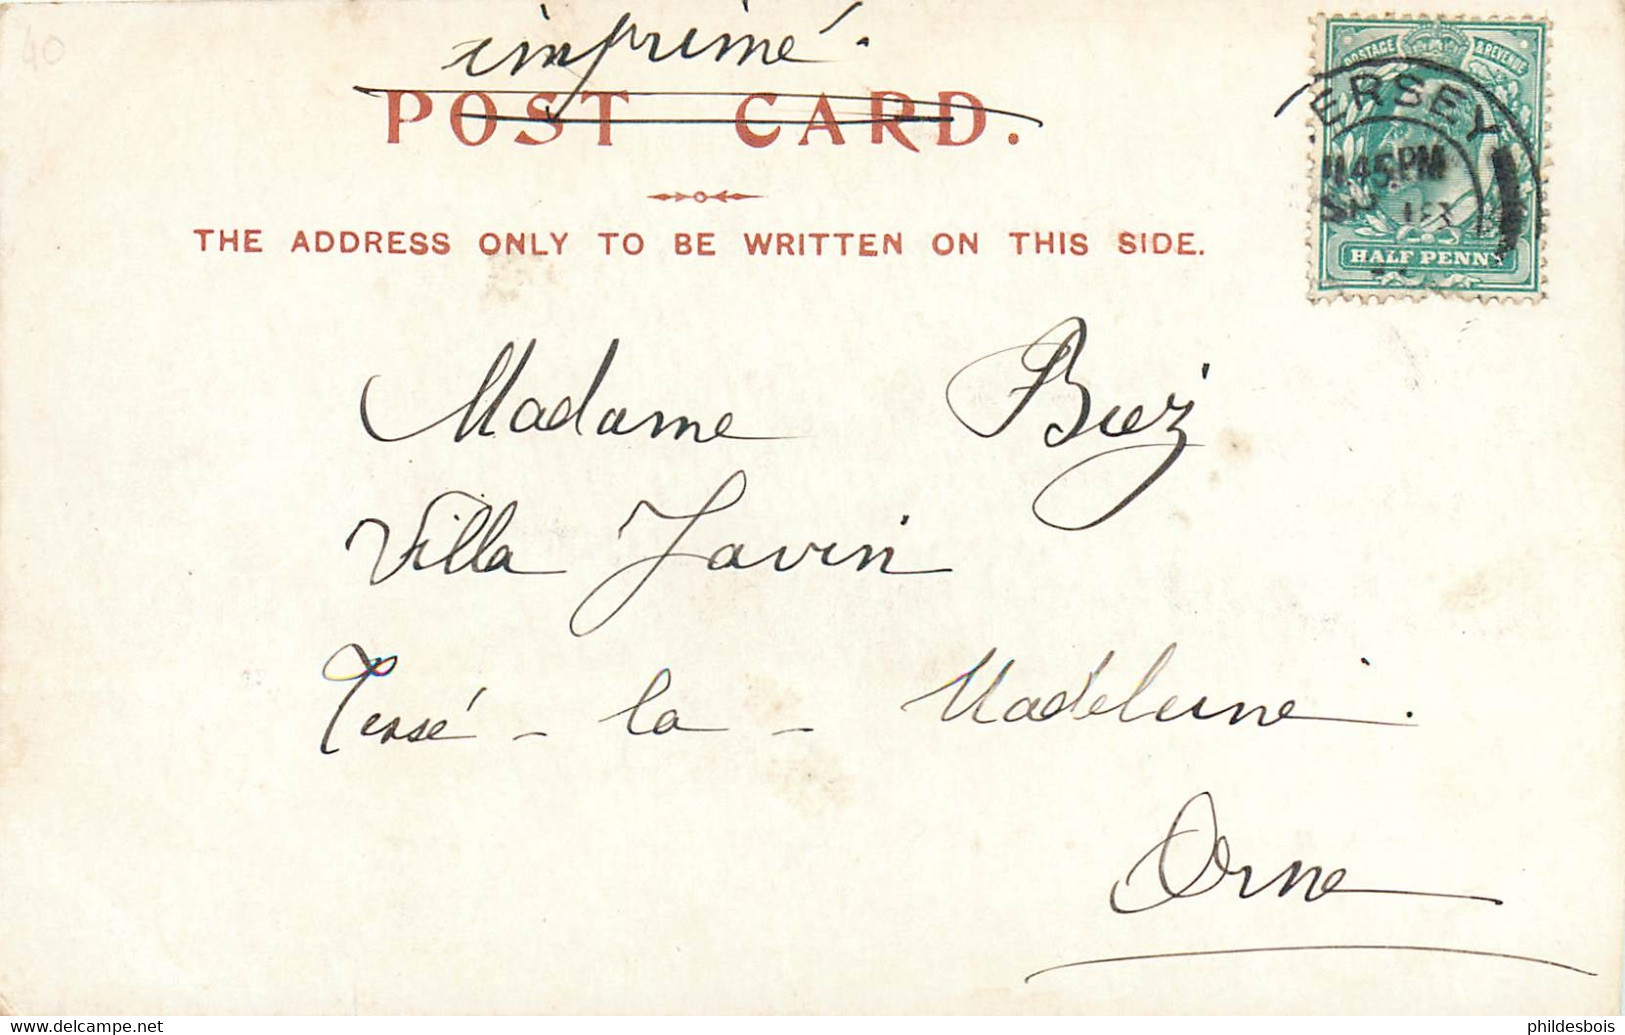 40
imprimé.
POST CARD.
THE ADDRESS ONLY TO BE WRITTEN ON THIS SIDE.
POSTAGE & REVENUE
ERSEY
1145PM
HALF PENNY
Madame Biez
Villa Javin
Tessé - la - Madeleine.
Orne
www.delcampe.net
phildesbois